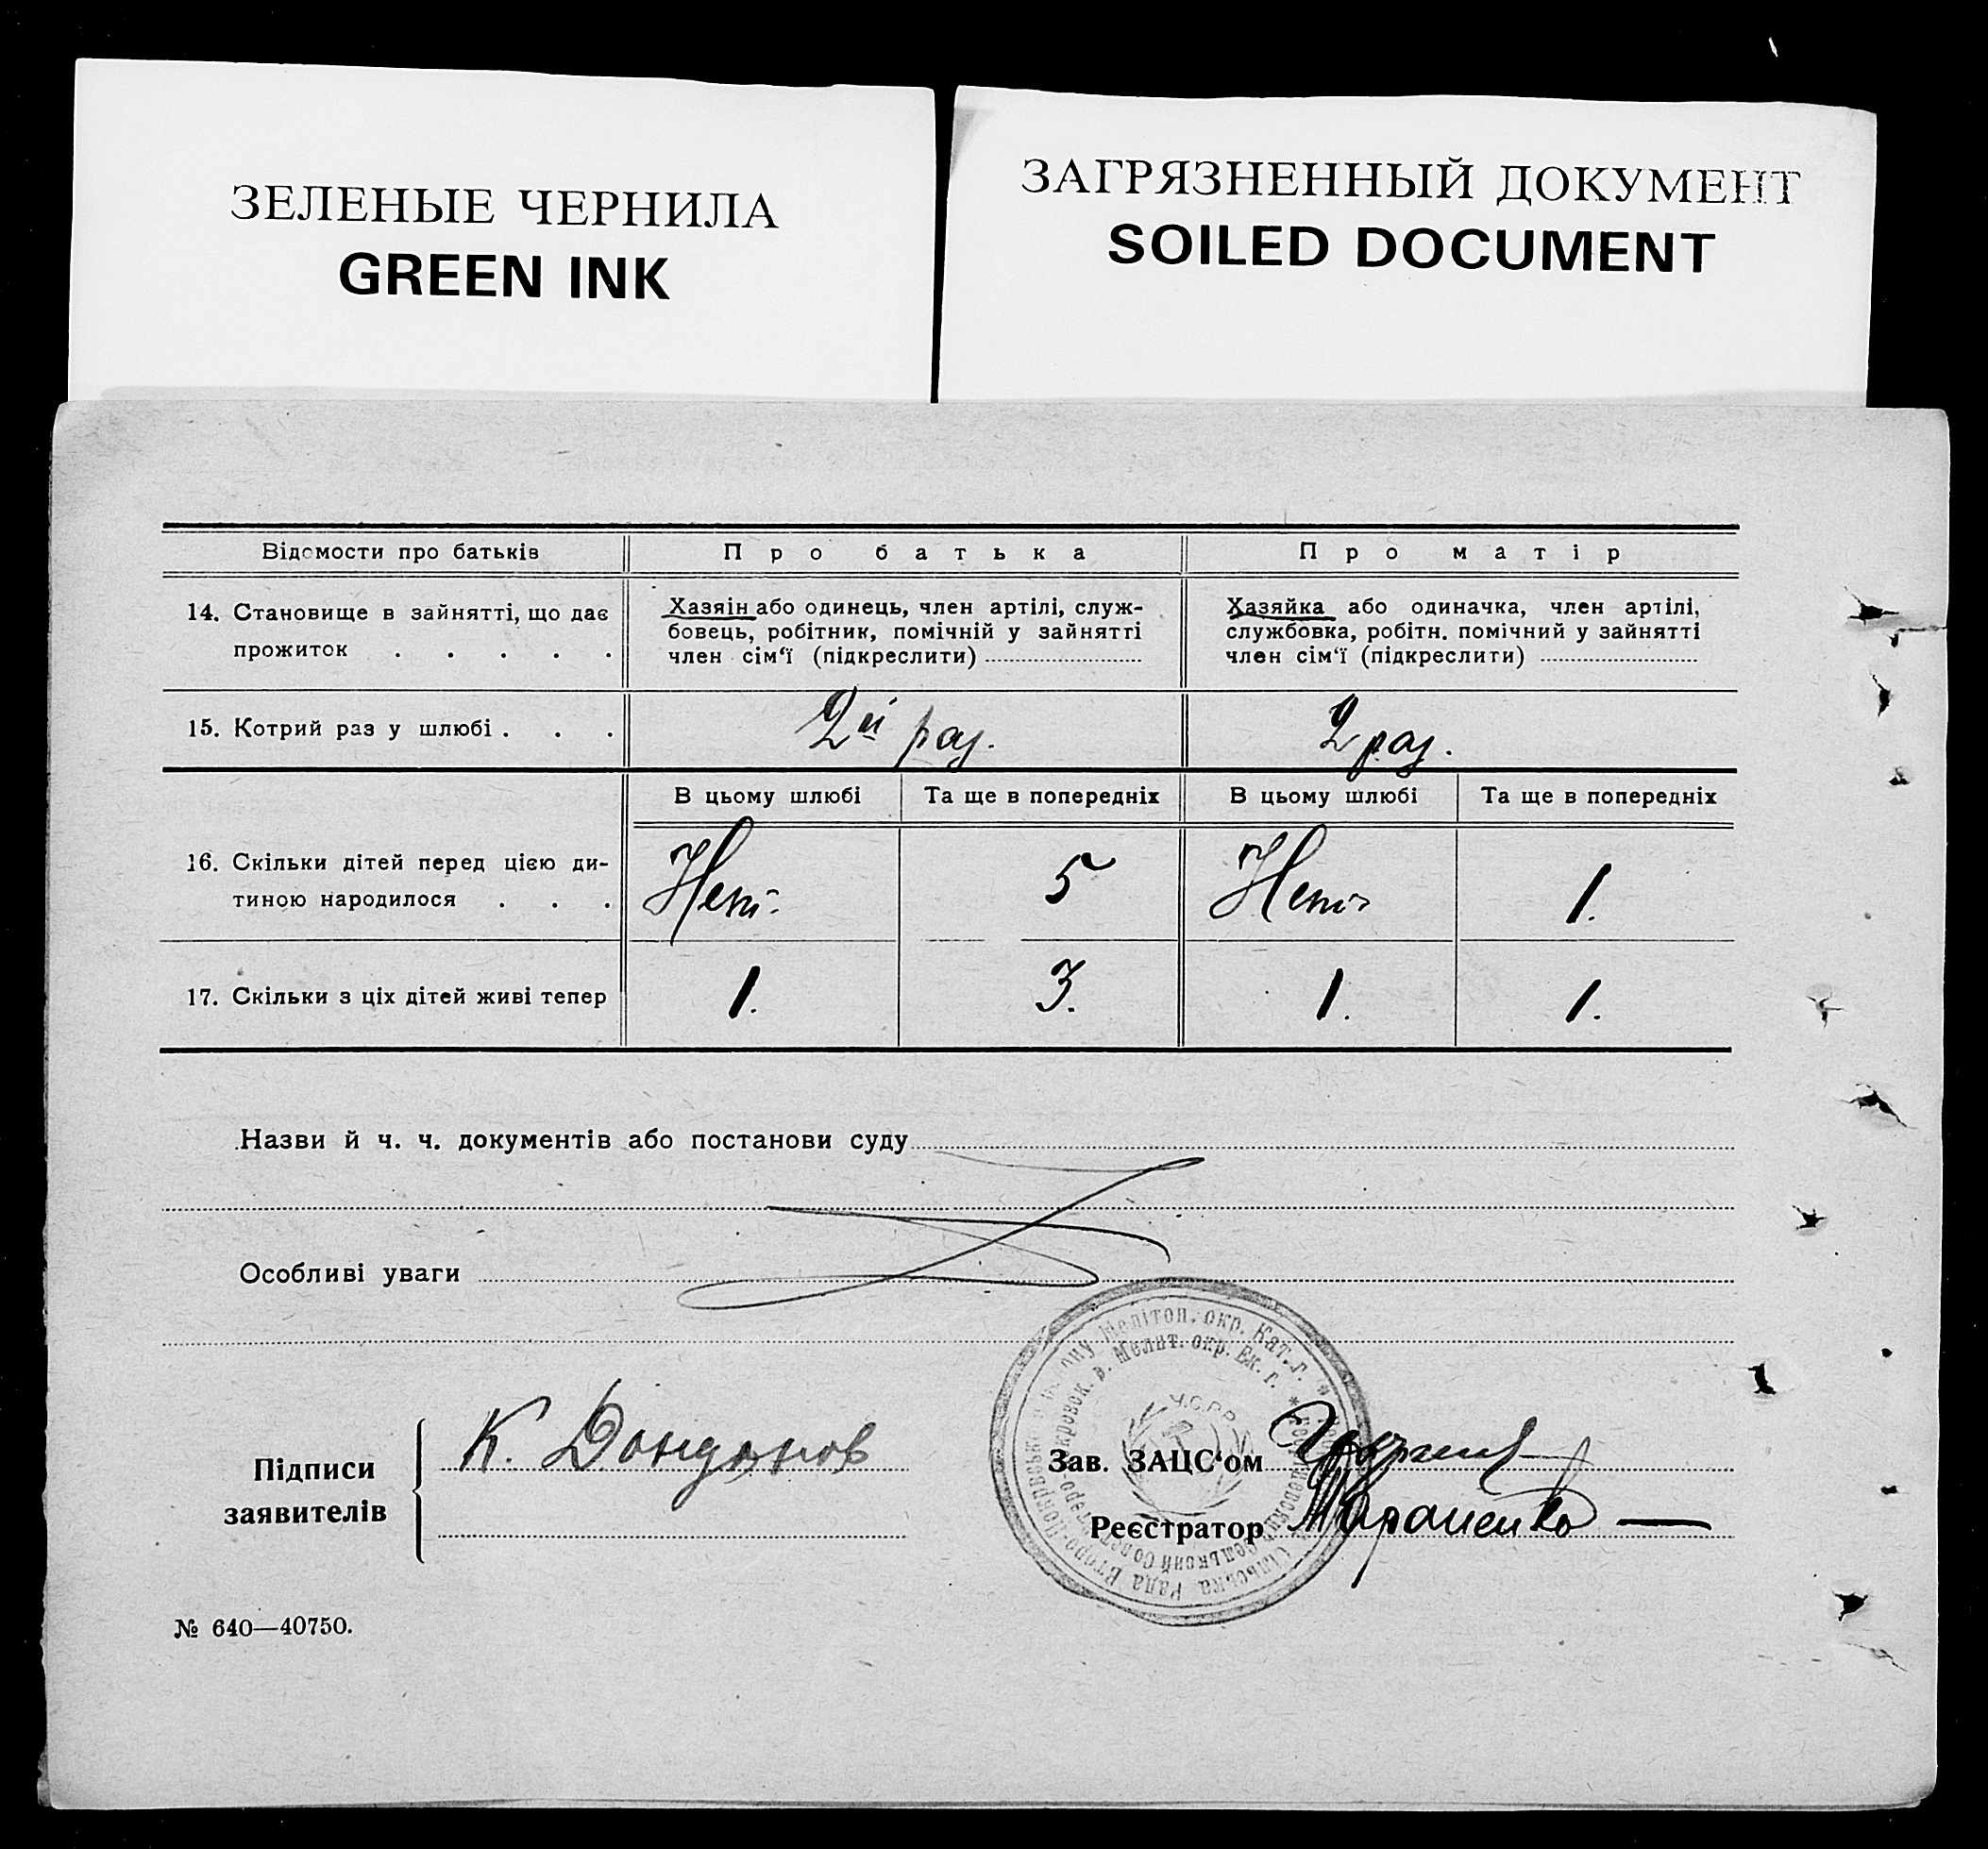 ЗЕЛЕНЫЕ ЧЕРНИЛА
GREEN INK
ЗАГРЯЗНЕННЫЙ ДОКУМЕНТ
SOILED DOCUMENT
Відомости про батьків
Про батька
Про матір
14. Становище в зайнятті, що дає
прожиток . . . . .
Хазяін або одинець, член артілі, служ-
бовець, робітник, помічній у зайнятті
член сім‘ї (підкреслити)
Хазяйка або одиначка, член артілі,
службовка, робітн. помічний у зайнятті
член сім‘ї (підкреслити)
15. Котрий раз у шлюбі . . .
2й раз.
2 раз.
В цьому шлюбі
Та ще в попередніх
В цьому шлюбі
Та ще в попередніх
16. Скільки дітей перед цією ди-
тиною народилося . . .
Нет
5
Нет
1.
17. Скільки з ціх дітей живі тепер
1.
3.
1.
1.
Назви й ч. ч. документів або постанови суду
Особливі уваги
Мелітоп. окр. Кат. г. *
Мелит. окр. Ек. г. *
У.С.Р.Р.
Сільська Рада
Сельский Совет
Підписи
заявителів
К. Дондонов
Зав. ЗАЦС‘ом
Реєстратор
№ 640—40750.